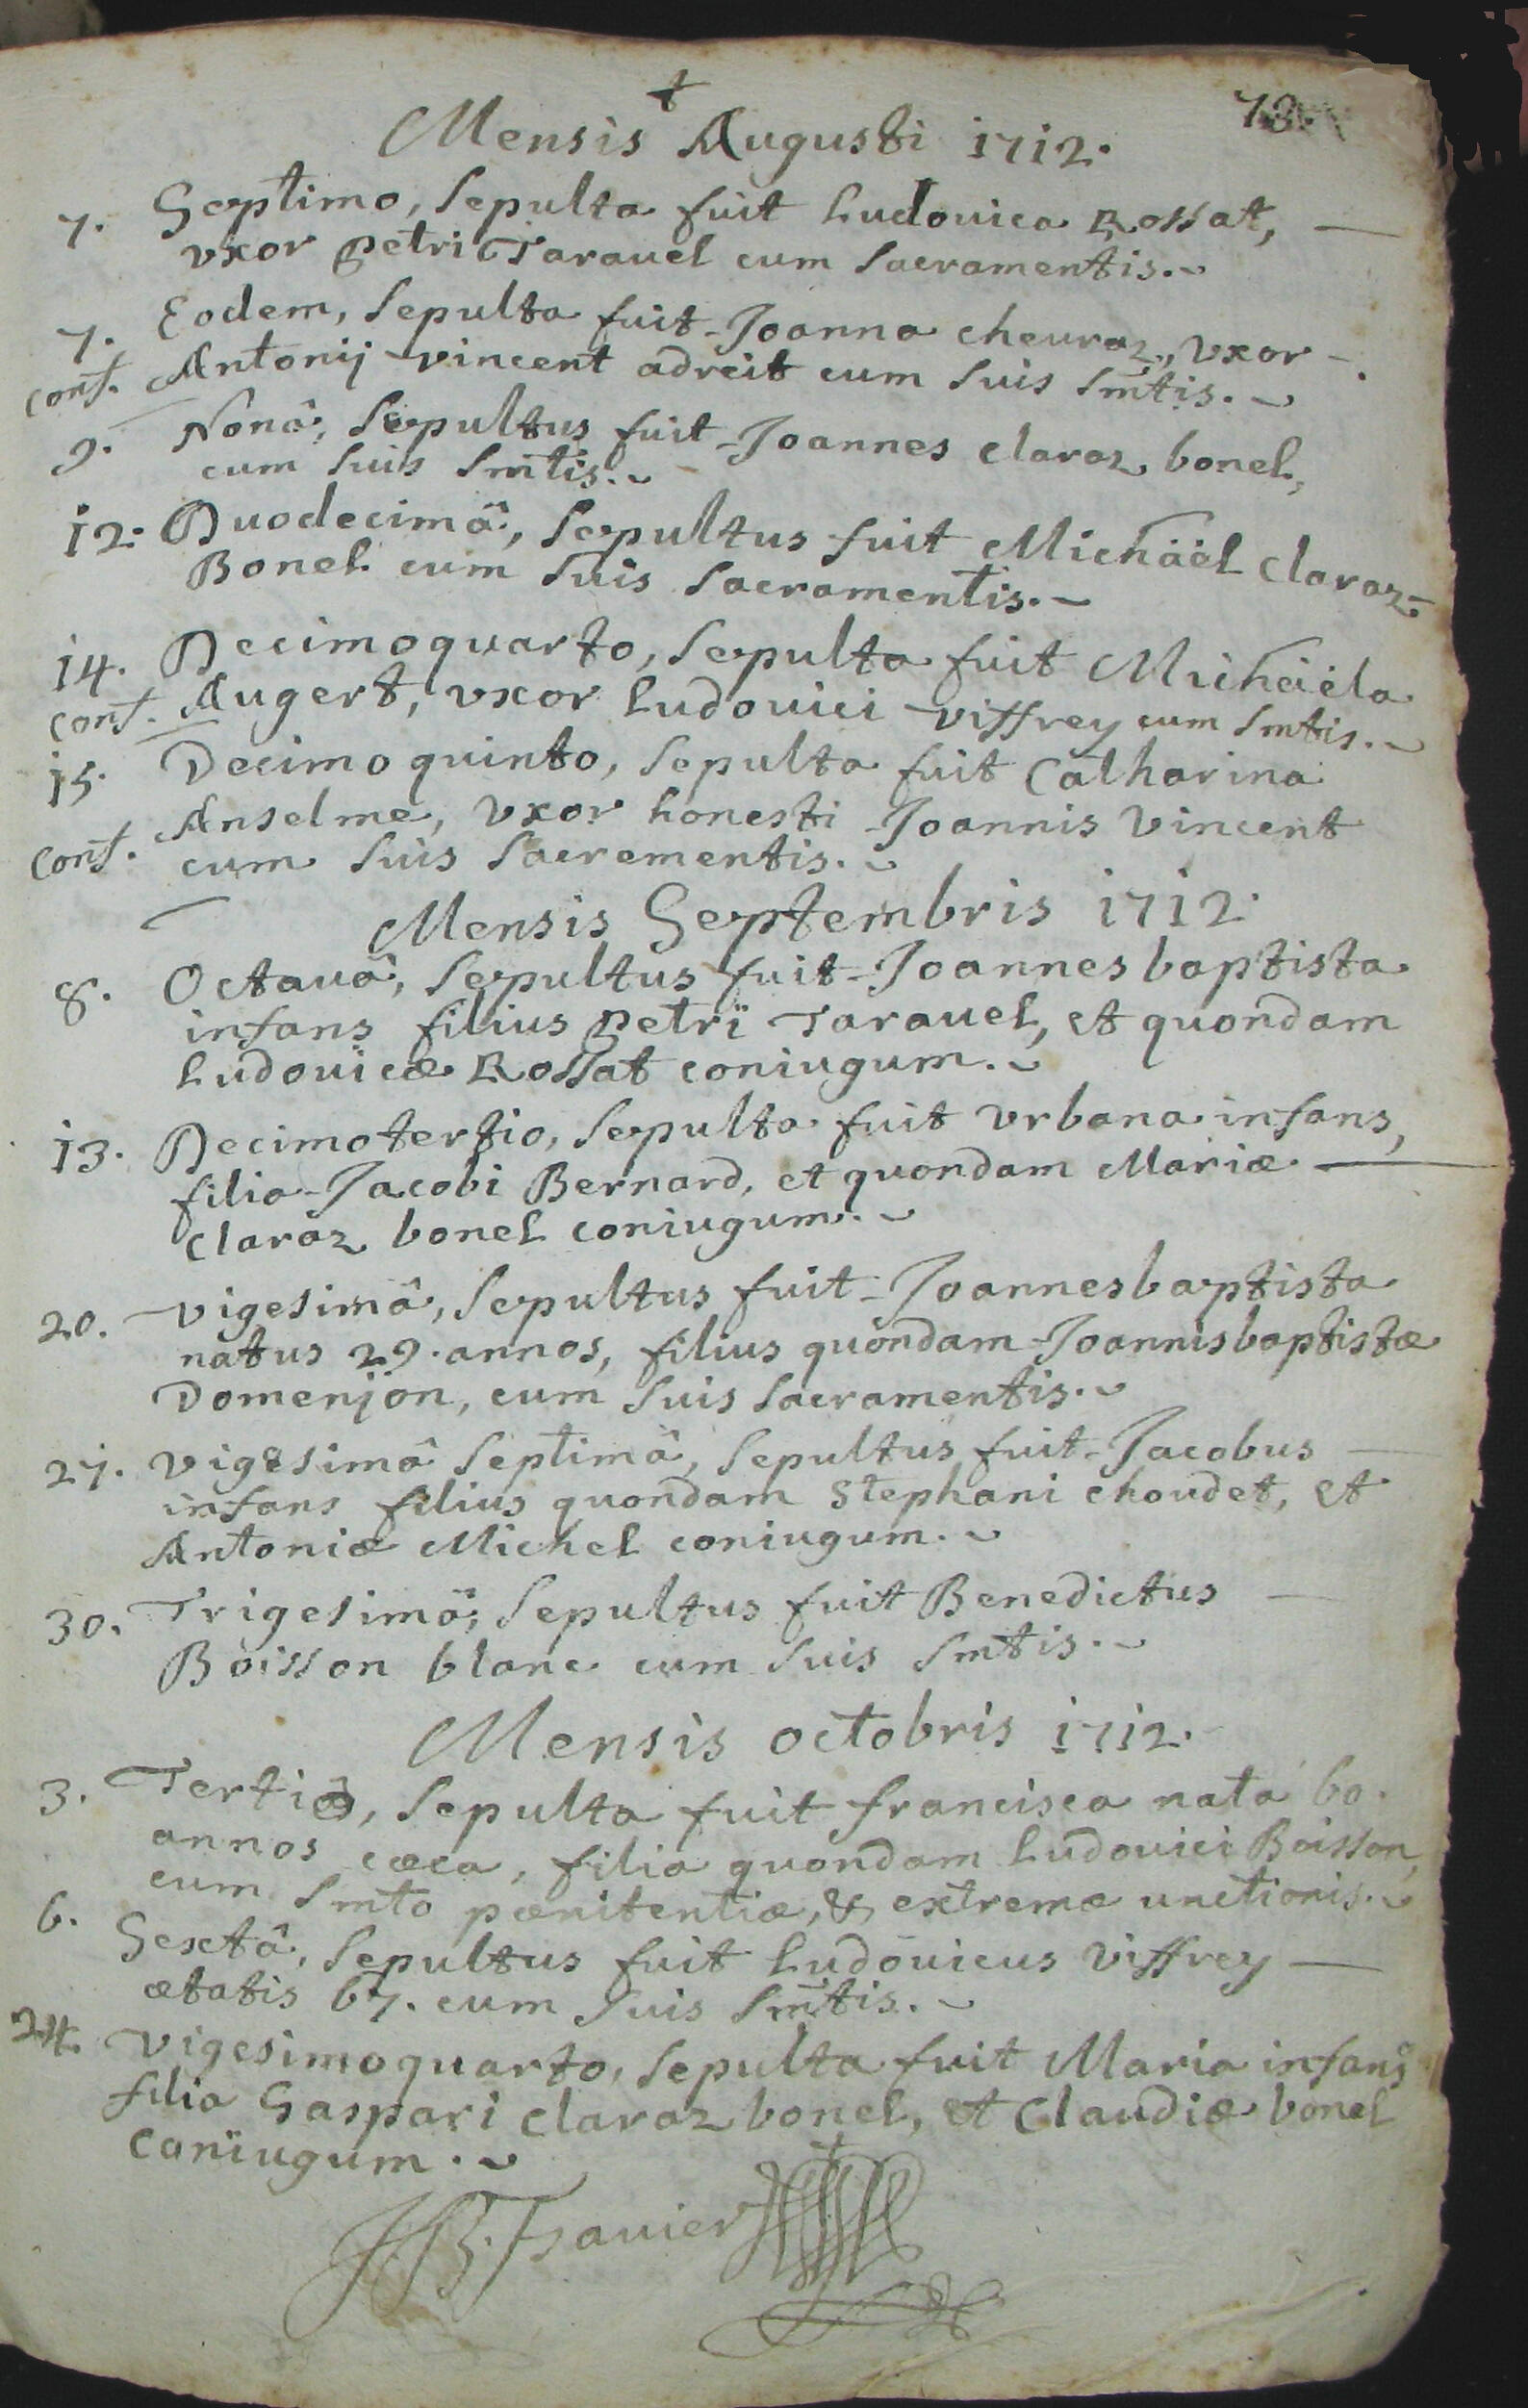 Mensis Augusti 1712.
7. Septimo, sepulta fuit Ludouica Rossat,
vxor petri Tarauel cum sacramentis.
7. Eodem, sepulta fuit Joanna cheuraz, vxor
conf. Antonij vincent adreit cum suis smtis.
9. Nonâ, sepultus fuit Joannes claraz bonel,
cum suis smtis.
12. Duodecimâ, sepultus fuit Michaël claraz
Bonel cum suis sacramentis.
14. Decimoquarto, sepulta fuit Michaëla
conf. Augert, vxor Ludouici viffrey cum smtis.
15. Decimo quinto, sepulta fuit Catharina
Anselme, vxor honesti Joannis Vincent
conf. cum suis sacrementis.
Mensis Septembris 1712.
8. Octauâ, sepultus fuit Joannes baptista
infans filius petri Tarauel, et quondam
Ludouicæ Rossat coniugum.
13. Decimotertio, sepulta fuit vrbana infans,
filia Jacobi Bernard, et quondam Mariæ
claraz bonel coniugum.
20. vigesimâ, sepultus fuit Joannesbaptista
natus 29. annos, filius quondam Joannisbaptistæ
Domenjon, cum suis sacramentis.
27. vigesimâ septimâ, sepultus fuit Jacobus
infans filius quondam Stephani choudet, et
Antoniæ Michel coniugum.
30. Trigesimâ, sepultus fuit Benedictus
Boisson blanc cum suis smtis.
Mensis octobris 1712.
3. Tertiâ, sepulta fuit francisca nata 60.
annos cæca, filia quondam Ludouici Boisson,
cum smto pænitentiæ, & extremæ unctionis.
6. Sextâ, sepultus fuit Ludouicus viffrey
ætatis 67. cum suis smtis.
24. vigesimoquarto, sepulta fuit Maria infans
filia Gaspari claraz bonel, et Claudiæ bonel
coniugum.